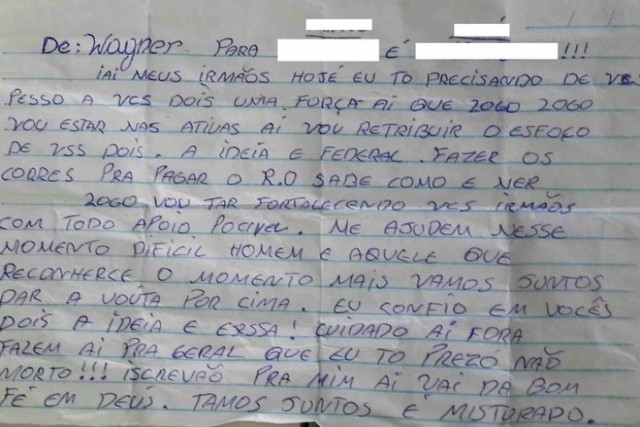 De: Wagner PARA É !!!
IAI MEUS IRMÃOS HOJE EU TO PRECISANDO DE VCS
PESSO A VCS DOIS UMA FORÇA AI QUE 2060 2060
VOU ESTAR NAS ATIVAS AI VOU RETRIBUIR O ESFOÇO
DE VSS DOIS. A IDEIA E FEDERAL. FAZER OS
CORRES PRA PAGAR O R.O SABE COMO E NER
2060 VOU TAR FORTALECENDO VCS IRMÃOS
COM TODO APOIO POCIVEL. ME AJUDEM NESSE
MOMENTO DIFICIL HOMEM E AQUELE QUE
RECONHERCE O MOMENTO MAIS VAMOS JUNTOS
DAR A VOUTA POR CIMA. EU CONFIO EM VOCÊS
DOIS A IDEIA E ERSSA! CUIDADO AI FORA
FAZEM AI PRA GERAL QUE EU TO PREZO NÃO
MORTO!!! ISCREVÃO PRA MIM AI VAI DA BOM
FÉ EM DEUS. TAMOS JUNTOS E MISTURADO.